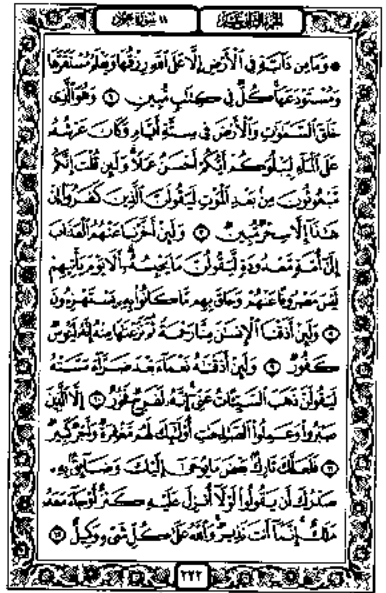 ١١ سورة هود
الجزء الثاني عشر
۞ وَمَا مِن دَآبَّةٍ فِي ٱلْأَرْضِ إِلَّا عَلَى ٱللَّهِ رِزْقُهَا وَيَعْلَمُ مُسْتَقَرَّهَا
وَمُسْتَوْدَعَهَا ۚ كُلٌّ فِي كِتَٰبٍ مُّبِينٍ ٦ وَهُوَ ٱلَّذِي
خَلَقَ ٱلسَّمَٰوَٰتِ وَٱلْأَرْضَ فِي سِتَّةِ أَيَّامٍ وَكَانَ عَرْشُهُۥ
عَلَى ٱلْمَآءِ لِيَبْلُوَكُمْ أَيُّكُمْ أَحْسَنُ عَمَلًا ۗ وَلَئِن قُلْتَ إِنَّكُم
مَّبْعُوثُونَ مِنۢ بَعْدِ ٱلْمَوْتِ لَيَقُولَنَّ ٱلَّذِينَ كَفَرُوٓا۟ إِنْ
هَٰذَآ إِلَّا سِحْرٌ مُّبِينٌ ٧ وَلَئِنْ أَخَّرْنَا عَنْهُمُ ٱلْعَذَابَ
إِلَىٰٓ أُمَّةٍ مَّعْدُودَةٍ لَّيَقُولُنَّ مَا يَحْبِسُهُۥٓ ۗ أَلَا يَوْمَ يَأْتِيهِمْ
لَيْسَ مَصْرُوفًا عَنْهُمْ وَحَاقَ بِهِم مَّا كَانُوا۟ بِهِۦ يَسْتَهْزِءُونَ
٨ وَلَئِنْ أَذَقْنَا ٱلْإِنسَٰنَ مِنَّا رَحْمَةً ثُمَّ نَزَعْنَٰهَا مِنْهُ إِنَّهُۥ لَيَـُٔوسٌ
كَفُورٌ ٩ وَلَئِنْ أَذَقْنَٰهُ نَعْمَآءَ بَعْدَ ضَرَّآءَ مَسَّتْهُ
لَيَقُولَنَّ ذَهَبَ ٱلسَّيِّـَٔاتُ عَنِّيٓ ۚ إِنَّهُۥ لَفَرِحٌ فَخُورٌ ١٠ إِلَّا ٱلَّذِينَ
صَبَرُوا۟ وَعَمِلُوا۟ ٱلصَّٰلِحَٰتِ أُو۟لَٰٓئِكَ لَهُم مَّغْفِرَةٌ وَأَجْرٌ كَبِيرٌ
١١ فَلَعَلَّكَ تَارِكٌۢ بَعْضَ مَا يُوحَىٰٓ إِلَيْكَ وَضَآئِقٌۢ بِهِۦ
صَدْرُكَ أَن يَقُولُوا۟ لَوْلَآ أُنزِلَ عَلَيْهِ كَنزٌ أَوْ جَآءَ مَعَهُۥ
مَلَكٌ ۚ إِنَّمَآ أَنتَ نَذِيرٌ ۚ وَٱللَّهُ عَلَىٰ كُلِّ شَيْءٍ وَكِيلٌ ١٢
٢٢٢